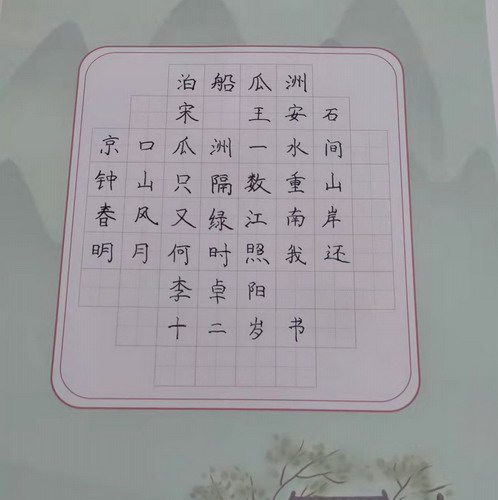 泊船瓜洲
宋 王安石
京口瓜洲一水间
钟山只隔数重山
春风又绿江南岸
明月何时照我还
李卓阳
十二岁书